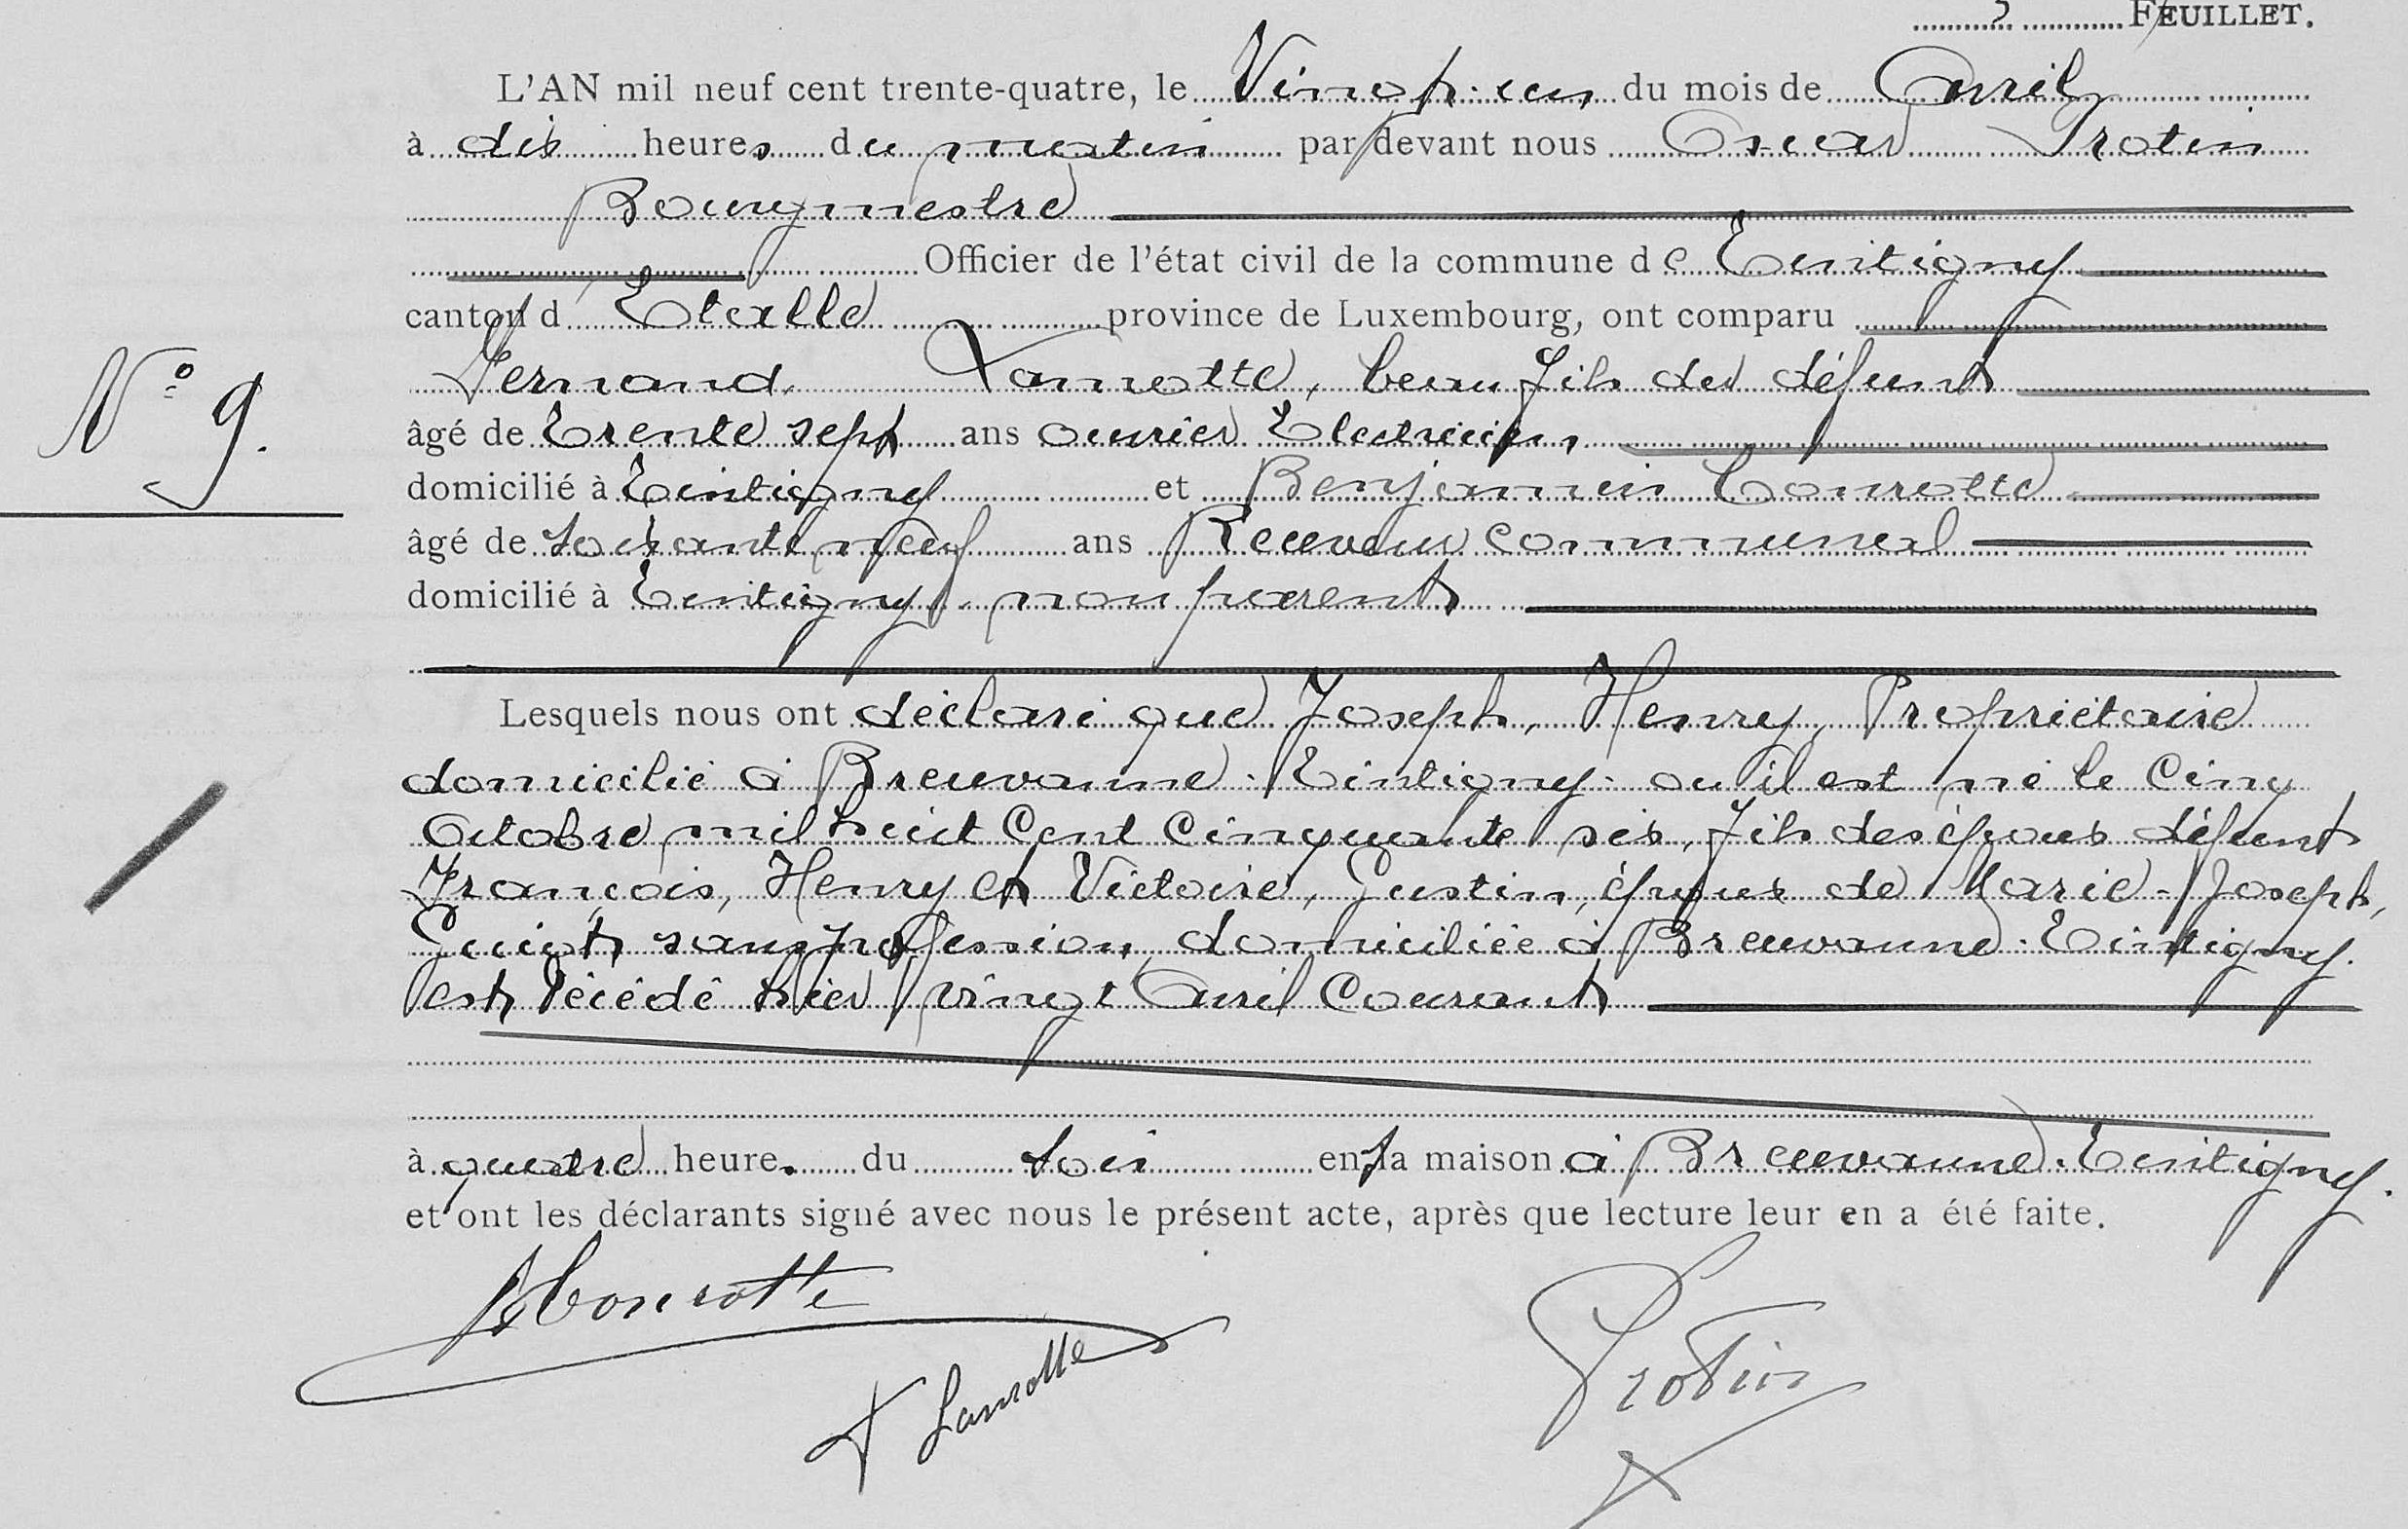 FEUILLET.
L'AN mil neuf cent trente-quatre, le Vingt-un du mois de Avril
à dix heures du matin par devant nous Oscar Protin
Bourgmestre
Officier de l'état civil de la commune de Tintigny
canton d'Etalle province de Luxembourg, ont comparu
Fernand, Lamotte, beau fils du défunt
âgé de Trente sept ans ouvrier Electricien,
domicilié à Tintigny et Benjamin Conrotte
N° 9.
âgé de Soixante neuf ans Receveur Communal
domicilié à Tintigny, non parent
Lesquels nous ont déclaré que Joseph, Henry, Propriétaire
domicilié à Breuvanne-Tintigny - ou il est né le Cinq
Octobre mil huit Cent Cinquante six, fils des époux défunt
François, Henry et Victoire, Justin, époux de Marie-Joseph,
Guiot sans profession domiciliée à Breuvanne-Tintigny.
est décédé hier vingt Avril Courant
à quatre heure. du soir en la maison à Breuvanne-Tintigny.
et ont les déclarants signé avec nous le présent acte, après que lecture leur en a été faite.
B Conrotte
F Lamotte
Protin